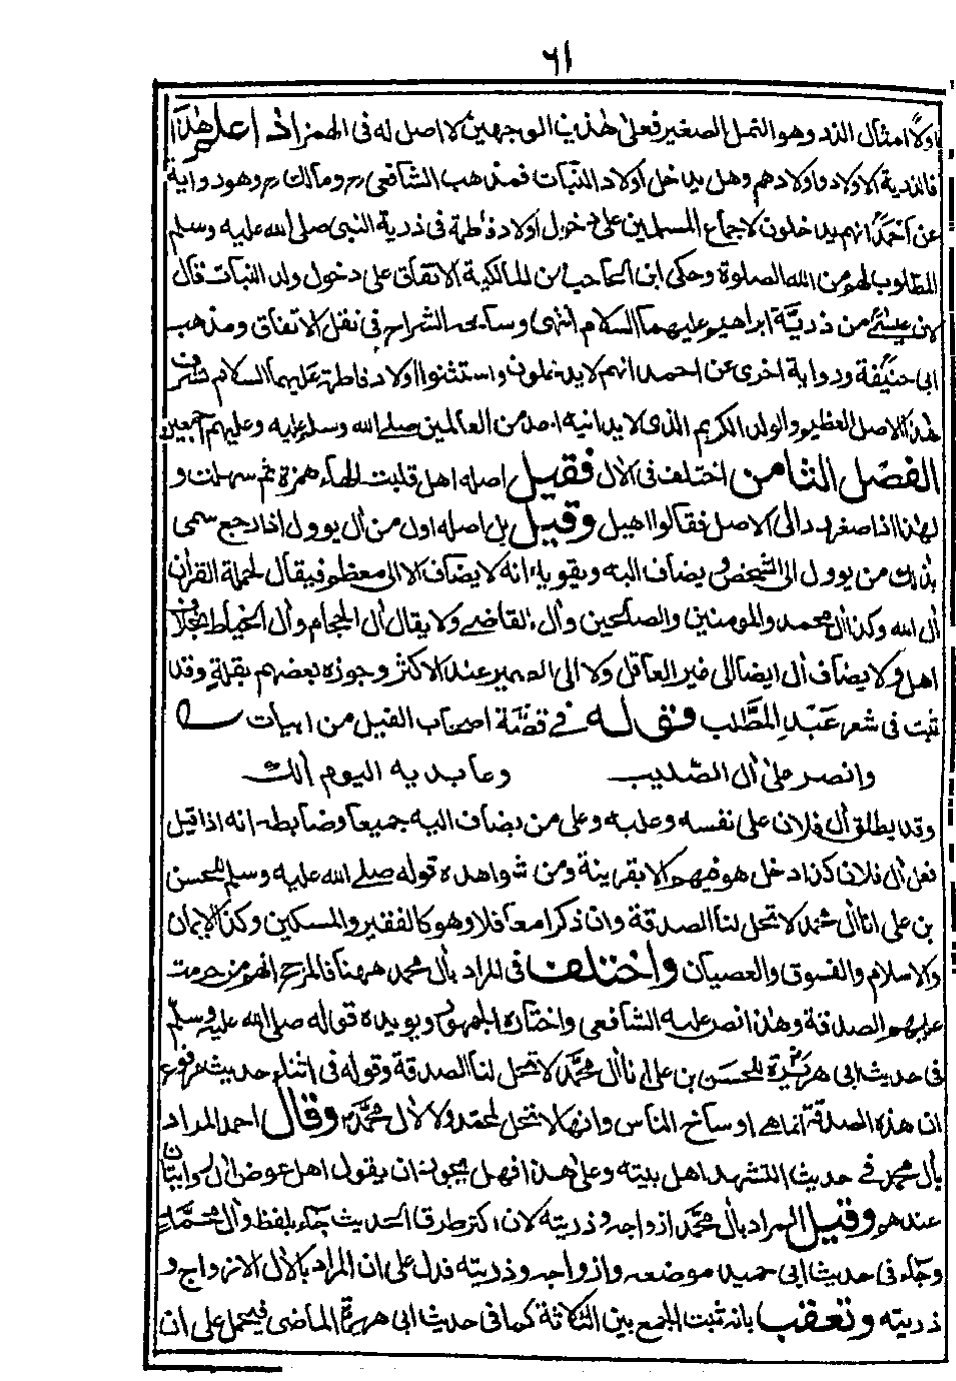 ٦١
اولاً امثال الذر وهو النمل الصغير فعلى هٰذين الوجهين لا اصل له فى الهمز اذا علم هٰذا
فالذرية الاولاد واولادهم وهل يدخل اولاد البنات فمذهب الشافعىؒ ومالكؒ وهو رواية
عن احمدؒ انهم يدخلون لاجماع المسلمين على دخول اولاد فاطمة فى ذرية النبى صلى الله عليه وسلم
المطلوب لهم من الله الصلوة وحكى ابن الحاجب من المالكية الاتفاق على دخول ولد البنات قال
لان عيسٰى من ذريّة ابراهيم عليهما السلام انتهى وسامحه الشراح فى نقل الاتفاق ومذهب
ابى حنيفة ورواية اخرى عن احمد انهم لا يدخلون واستثنوا اولاد فاطمة عليها السلام لشرف
هٰذا الاصل العظيم والولد الكريم الذى لا يدانيه احد من العالمين صلى الله وسلم عليه وعليهم اجمعين
الفصل الثامن اختلف فى الاٰل فقيل اصله اهل قلبت الهاء همزة ثم سهلت و
لهٰذا اذا صغر رد الى الاصل فقالوا اهيل وقيل بل اصله اول من اٰل يوول اذا رجع سمى
بذٰلك من يوول الى الشخص ويضاف اليه ويقويه انه لا يضاف الا الى معظم فيقال لحملة القراٰن
اٰل الله وكذا اٰل محمد والمومنين والصلحين واٰل القاضى ولا يقال اٰل الحجام واٰل الخياط بخلاف
اهل ولا يضاف اٰل ايضا الى غير العاقل ولا الى المضمير عند الاكثر وجوزه بعضهم بقلة وقد
ثبت فى شعر عبد المطلب قوله فى قصّة اصحاب الفيل من ابيات
وانصر على اٰل الصليب وعابديه اليوم اٰلك
وقد يطلق اٰل فلان على نفسه وعليه وعلى من يضاف اليه جميعا وضابطه انه اذا قيل
فعل اٰل فلان كذا دخل هو فيهم الا بقرينة ومن شواهده قوله صلى الله عليه وسلم للحسن
بن على انا اٰل محمد لا تحل لنا الصدقة وان ذكرا معا فلا وهو كالفقير والمسكين وكذا الايمان
والاسلام والفسوق والعصيان واختلف فى المراد باٰل محمد ههنا فالمرجح انهم من حرمت
عليهم الصدقة وهٰذا نص عليه الشافعى واختاره الجمهور ويويده قوله صلى الله عليه وسلم
فى حديث ابى هريرة للحسن بن على انا اٰل محمد لا تحل لنا الصدقة وقوله فى اثناء حديث مرفوع
ان هذه الصدقة انما هى اوساخ الناس وانها لا تحل لمحمد ولا لاٰل محمد وقال احمد المراد
باٰل محمد فى حديث التشهد اهل بيته وعلى هٰذا فهل يجوز ان يقول اهل عوض اٰل روايتان
عندهم وقيل المراد باٰل محمد ازواجه وذريته لان اكثر طرق الحديث جاء بلفظ واٰل محمد
وجاء فى حديث ابى حميد موضعه وازواجه وذريته فدل على ان المراد بالاٰل الازواج و
ذريته وتعقب بانه ثبت الجمع بين الثلاثة كما فى حديث ابى هريرة الماضى فيحمل على ان